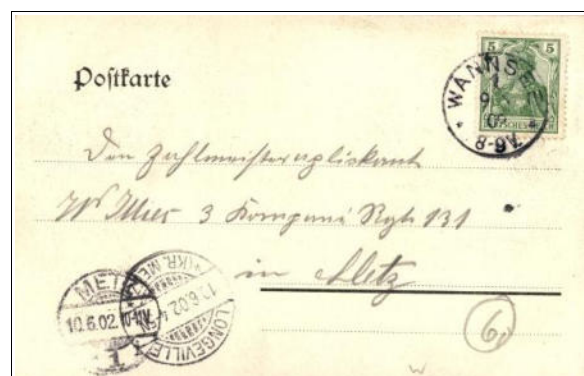 Postkarte
5 5
WANNSEE
9
8-9V.
Den Zahlmeisteraspirant
3 Kompanie Rgt. 131
in Metz
METZ
10.6.02.
1
LONGEVILLE (KR. METZ)
6